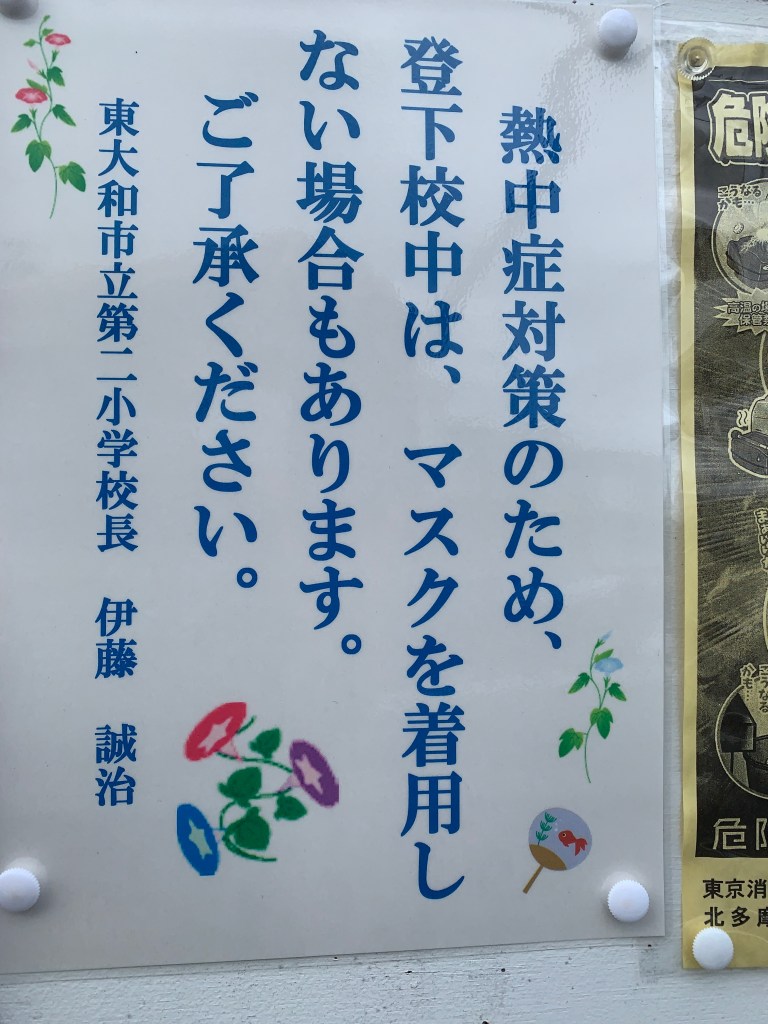 熱中症対策のため、
登下校中は、マスクを着用し
ない場合もあります。
ご了承ください。
東大和市立第二小学校長　伊藤　誠治
危険
こうなる
かも…
高温の場
保管禁
まぁいいか
こうなる
かも…
危険
東京消
北多摩